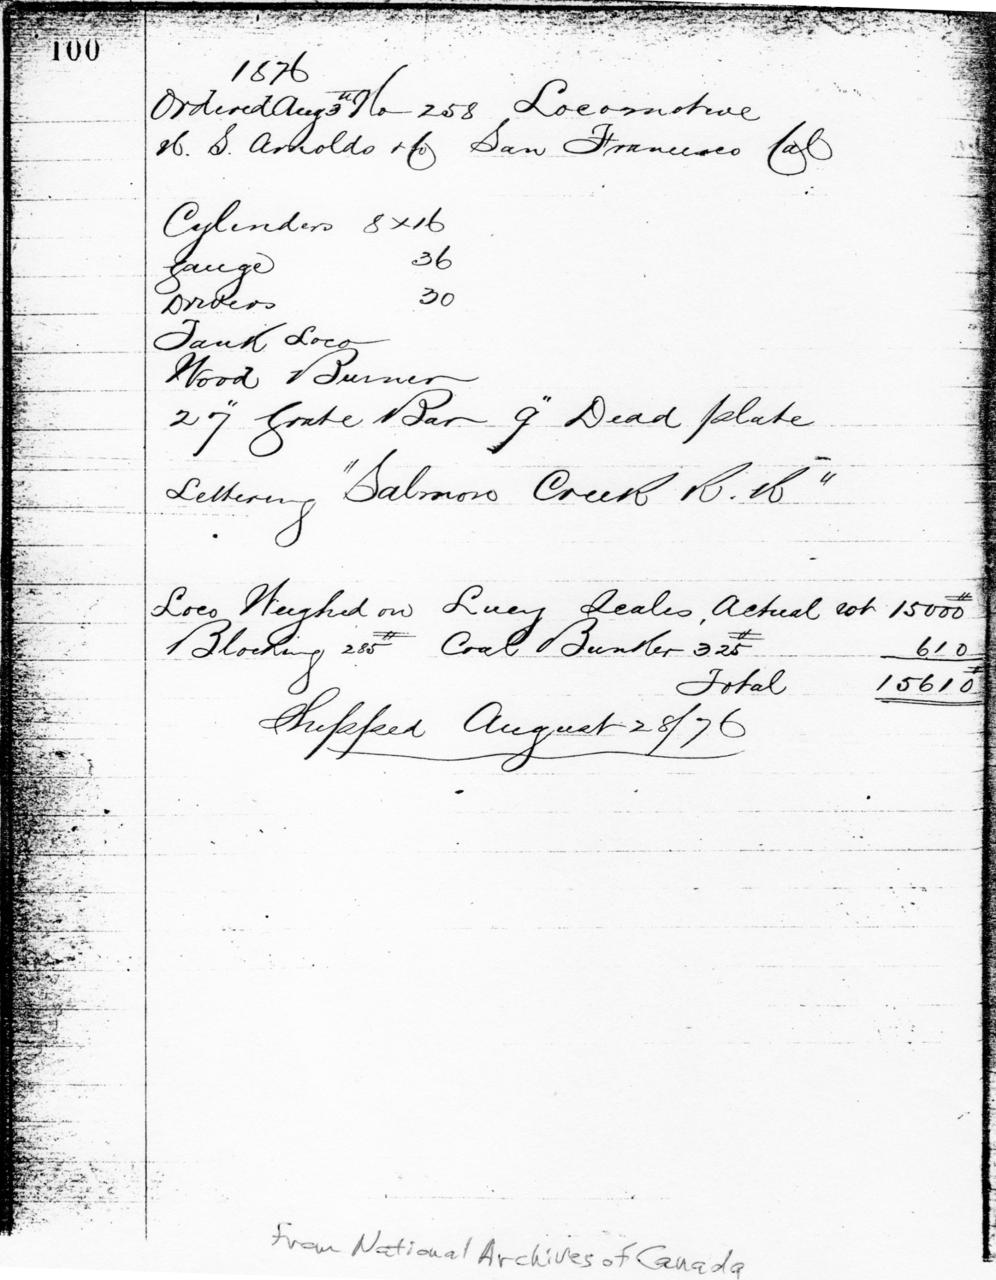 100
1876
Ordered Aug 3th No 258 Locomotive
N. S. Arnolds & Co San Francisco Cal
Cylinders 8 x 16
Gauge 36
Drivers 30
Tank Loco
Wood Burner
27" Grate Bar 9" Dead plate
Lettering "Salmon Creek R. R"
Loco Weighed on Lucy Scales, Actual wt 15000#
Blocking 285# Coal Bunker 325# 610
Total 15610#
Shipped August 28/76
From National Archives of Canada